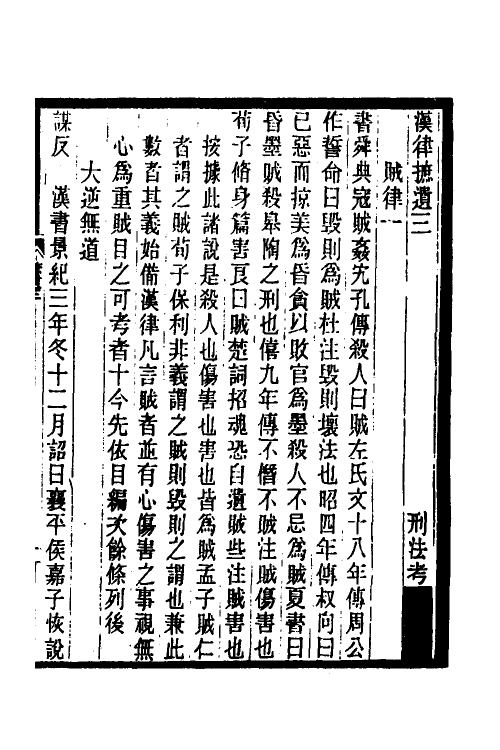 漢律摭遺三　刑法考
賊律一
書舜典寇賊姦宄孔傳殺人曰賊左氏文十八年傳周公
作誓命曰毀則爲賊杜注毀則壞法也昭四年傳叔向曰
已惡而掠美爲昏貪以敗官爲墨殺人不忌爲賊夏書曰
昏墨賊殺皋陶之刑也僖九年傳不僭不賊注賊傷害也
荀子脩身篇害良曰賊楚詞招魂恐自遺賊些注賊害也
按據此諸說是殺人也傷害也害也皆爲賊孟子賊仁
者謂之賊荀子保利非義謂之賊則毀則之謂也兼此
數者其義始備漢律凡言賊者並有心傷害之事視無
心爲重賊目之可考者十今先依目編次餘條列後
大逆無道
謀反　漢書景紀三年冬十二月詔曰襄平侯嘉子恢說